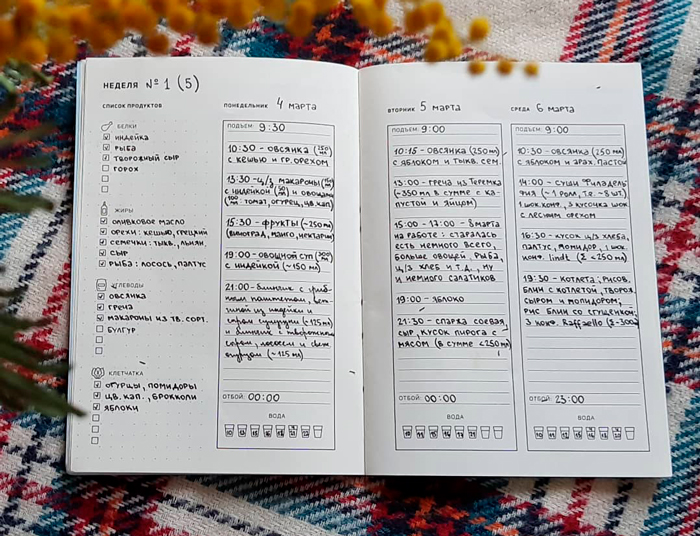 НЕДЕЛЯ № 1 (5)
СПИСОК ПРОДУКТОВ
БЕЛКИ
ИНДЕЙКА
РЫБА
ТВОРОЖНЫЙ СЫР
ГОРОХ
ЖИРЫ
ОЛИВКОВОЕ МАСЛО
ОРЕХИ: КЕШЬЮ, ГРЕЦКИЙ
СЕМЕЧКИ: ТЫКВ., ЛЬНЯН.
СЫР
РЫБА: ЛОСОСЬ, ПАЛТУС
УГЛЕВОДЫ
ОВСЯНКА
ГРЕЧА
МАКАРОНЫ ИЗ ТВ. СОРТ.
БУЛГУР
КЛЕТЧАТКА
ОГУРЦЫ, ПОМИДОРЫ
ЦВ. КАП., БРОККОЛИ
ЯБЛОКИ
ПОНЕДЕЛЬНИК 4 МАРТА
ПОДЪЕМ: 9:30
10:30 - ОВСЯНКА (250 МЛ)
С КЕШЬЮ И ГР. ОРЕХОМ
13:30 - Ц/З МАКАРОНЫ
С ИНДЕЙКОЙ И ОВОЩАМИ
ТОМАТ, ОГУРЕЦ, ЦВ. КАП)
15:30 - ФРУКТЫ (~250 МЛ)
(ВИНОГРАД, МАНГО, НЕКТАРИН)
19:00 - ОВОЩНОЙ СУП
С ИНДЕЙКОЙ (~150 МЛ)
21:00 - блинчик с
паштетом,
из индейки и
(~125 мл)
и блинчик с творожным
сыром, лососем и свеж.
огурцом (~125 мл)
ОТБОЙ: 00:00
ВОДА
ВТОРНИК 5 МАРТА
ПОДЪЕМ: 9:00
10:15 - ОВСЯНКА (250 МЛ)
С ЯБЛОКОМ И ТЫКВ. СЕМ.
13:00 - ГРЕЧА ИЗ ТЕРЕМКА
(~350 МЛ В СУММЕ С КА-
ПУСТОЙ И ЯЙЦОМ)
15:00 - 17:00 - 8 МАРТА
НА РАБОТЕ: СТАРАЛАСЬ
ЕСТЬ НЕМНОГО ВСЕГО,
БОЛЬШЕ ОВОЩЕЙ, РЫБА,
Ц/З ХЛЕБ И Т.Д., НУ
И НЕМНОГО САЛАТИКОВ
19:00 - ЯБЛОКО
21:30 - СПАРЖА СОЕВАЯ,
СЫР, КУСОК ПИРОГА С
МЯСОМ (В СУММЕ <250 МЛ)
ОТБОЙ: 00:00
ВОДА
СРЕДА 6 МАРТА
ПОДЪЕМ: 9:00
10:30 - ОВСЯНКА (250 МЛ)
С ЯБЛОКОМ И АРАХ. ПАСТОЙ
14:00 - СУШИ ФИЛАДЕЛЬ-
ФИЯ (~1 РОЛЛ, Т.Е. ~8 ШТ)
1 ШОК. КОНФ., 3 КУСОЧКА ШОК
С ЛЕСНЫМ ОРЕХОМ
16:30 - КУСОК Ц/З ХЛЕБА,
ПАЛТУС, ПОМИДОР, 1 ШОК.
КОНФ. Lindt (Σ <250 МЛ)
19:30 - КОТЛЕТА, РИСОВ.
БЛИН С КОТЛЕТОЙ, ТВОРОЖ.
СЫРОМ И ПОМИДОРОМ,
РИС БЛИН СО СГУЩЕНКОЙ,
3 КОНФ. Raffaello (Σ ~300
ОТБОЙ: 23:00
ВОДА